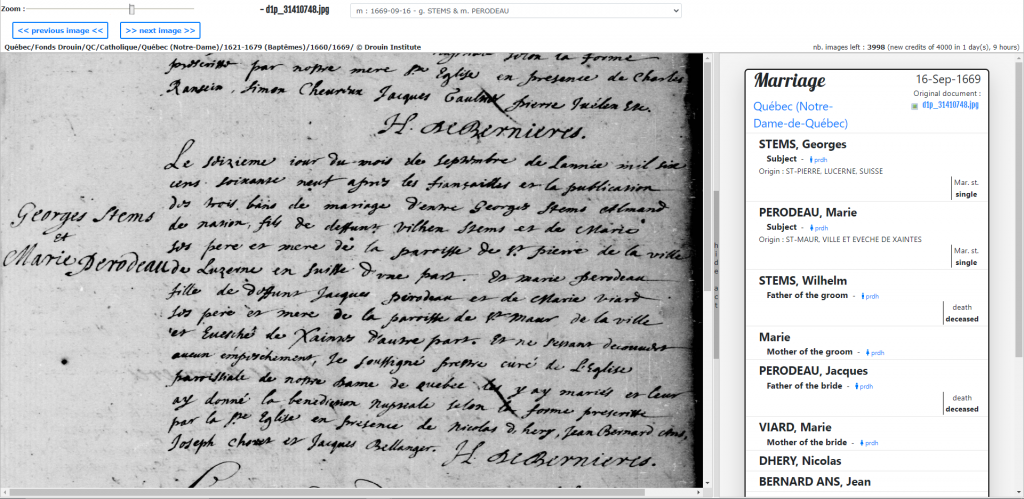 Zoom :
- d1p_31410748.jpg
m : 1669-09-16 - g. STEMS & m. PERODEAU
<< previous image <<
>> next image >>
Québec/Fonds Drouin/QC/Catholique/Québec (Notre-Dame)/1621-1679 (Baptêmes)/1660/1669/ © Drouin Institute
nb. images left : 3998 (new credits of 4000 in 1 day(s), 9 hours)
par nostre mere Ste Eglise en presence de Charles
Simon Jacques pierre
H. DeBernieres.
Le seizieme iour du mois de septembre de Lannée mil six
cens soixante neuf apres les fiançailles et la publication
des trois bans de mariage d'entre Georges Stems Almand
de nation, fils de deffunt vilhem Stems et de Marie
ses pere et mere de la parroisse de St pierre de la ville
de Luzerne en suisse d'une part. Et marie perodeau
fille de deffunt Jacques perodeau et de Marie viard
ses pere et mere de la parroisse de St Maur de la ville
et Evesché de Xaintes d'autre part. Et ne s'estant decouvert
aucun empeschement, Je soussigné prestre curé de L'Eglise
parroissiale de nostre Dame de quebec les y ay mariés et leur
ay donné la benediction nuptiale selon la forme prescritte
par la Ste Eglise en presence de nicolas d'hery, Jean Bernard Ans,
Joseph et Jacques Bellanger.
H. DeBernieres.
Georges Stems
et
Marie Perodeau
hide act
Marriage
16-Sep-1669
Original document :
d1p_31410748.jpg
Québec (Notre-
Dame-de-Québec)
STEMS, Georges
Subject - prdh
Origin : ST-PIERRE, LUCERNE, SUISSE
Mar. st.
single
PERODEAU, Marie
Subject - prdh
Origin : ST-MAUR, VILLE ET EVECHE DE XAINTES
Mar. st.
single
STEMS, Wilhelm
Father of the groom - prdh
death
deceased
Marie
Mother of the groom - prdh
PERODEAU, Jacques
Father of the bride - prdh
death
deceased
VIARD, Marie
Mother of the bride - prdh
DHERY, Nicolas
BERNARD ANS, Jean